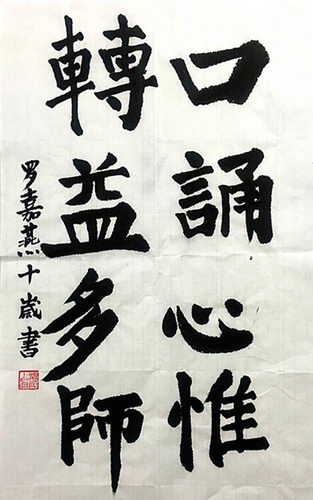 口誦心惟
轉益多師
罗嘉燕十歲書